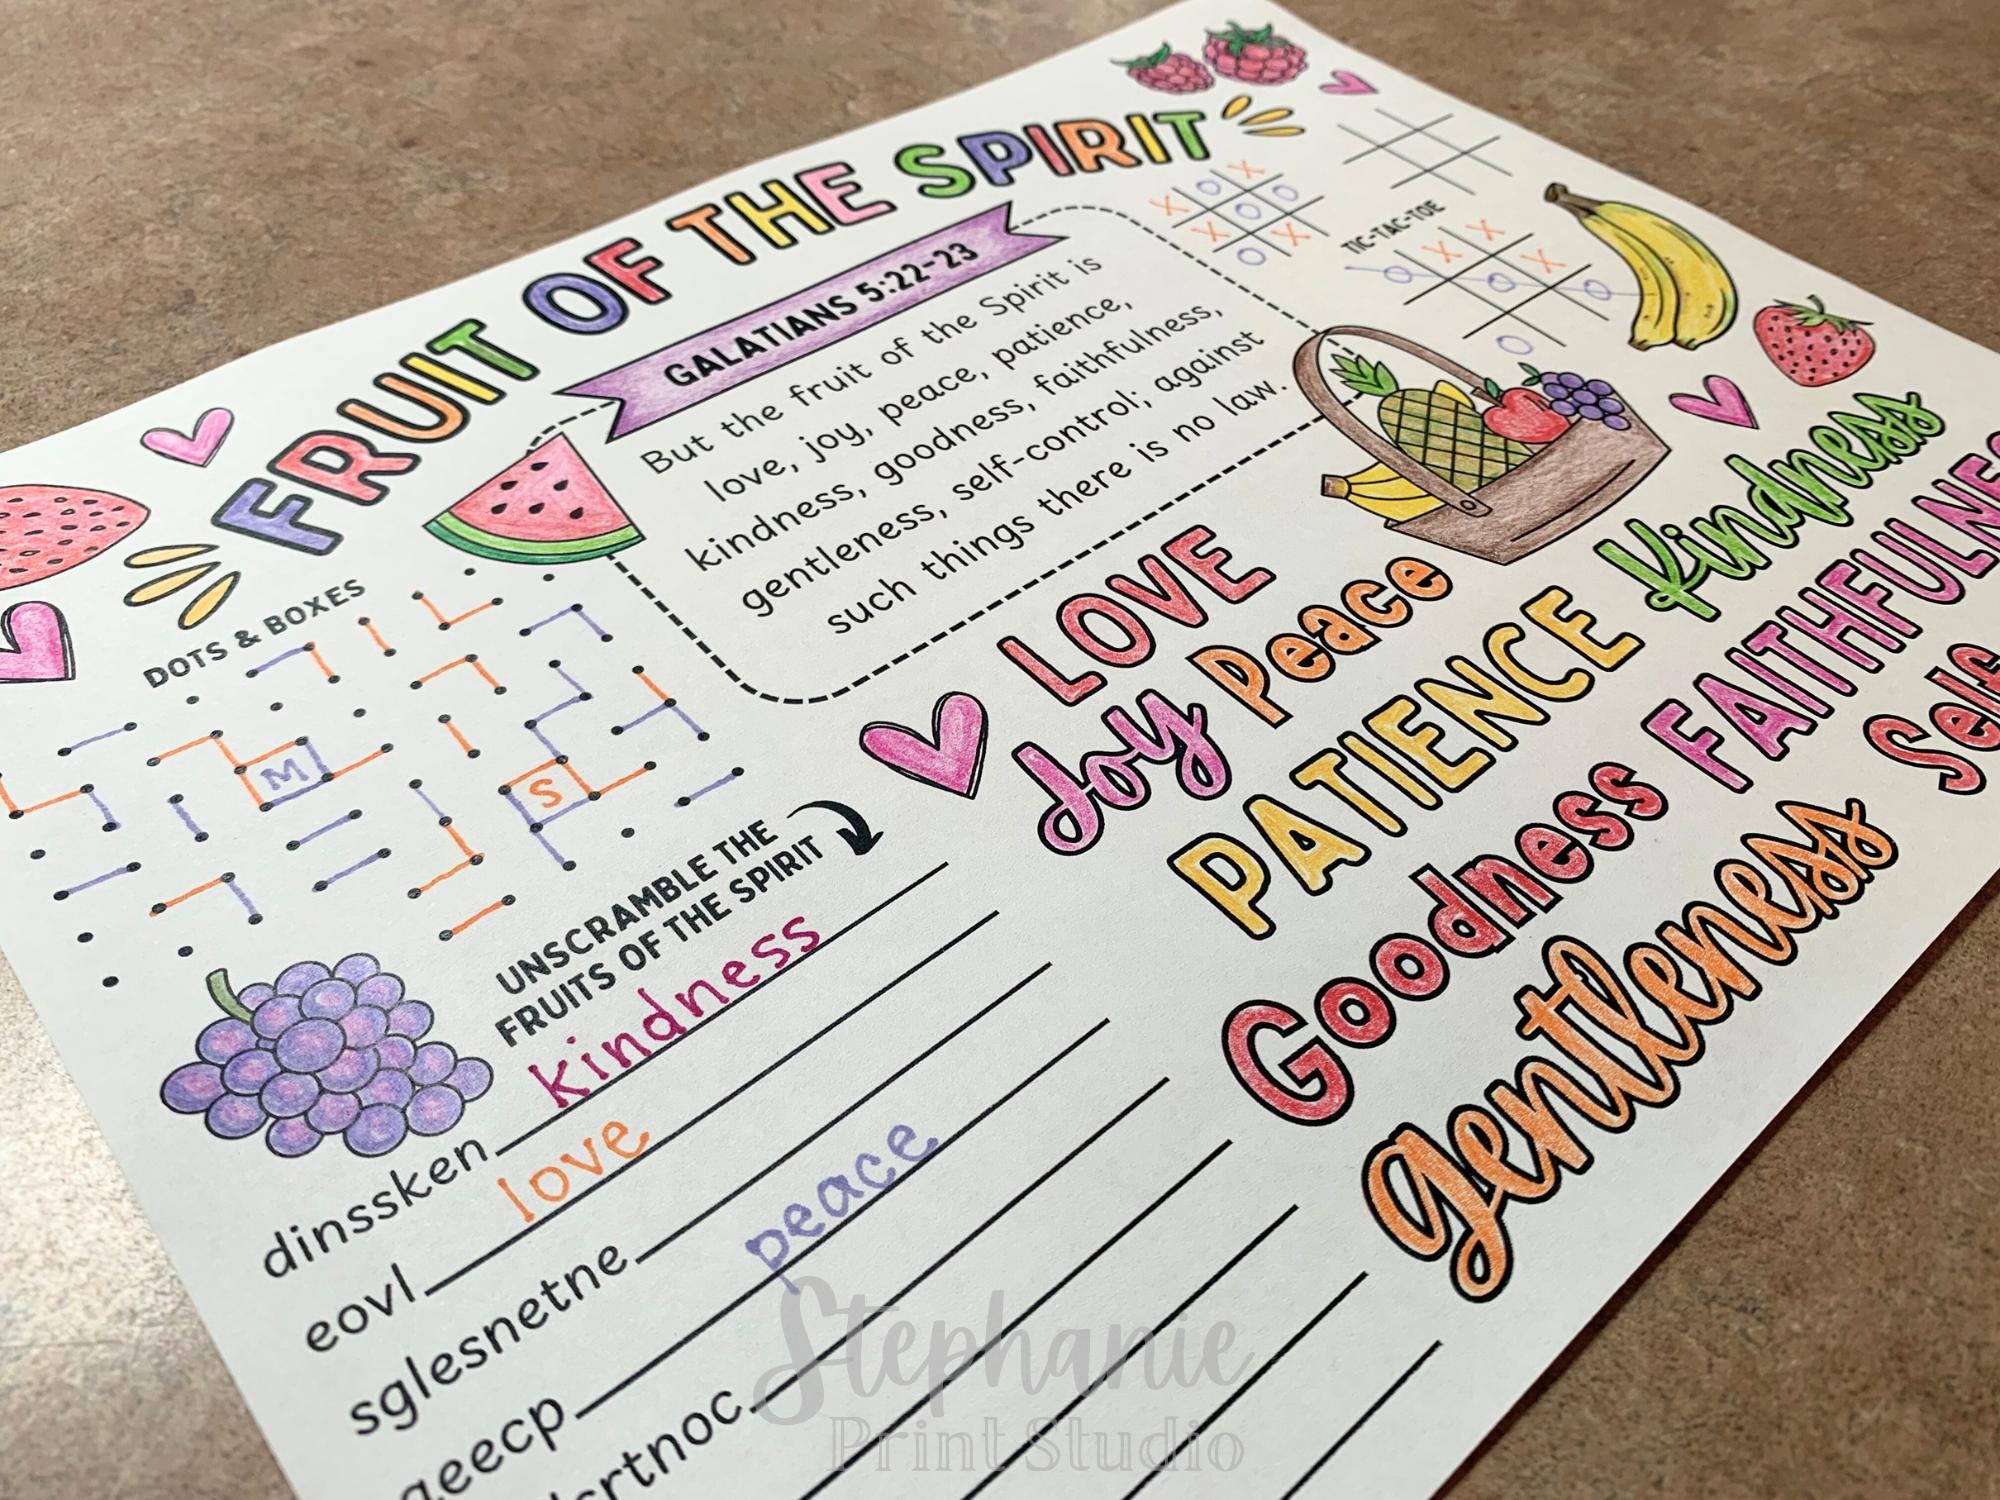 FRUIT OF THE SPIRIT
GALATIANS 5:22-23
But the fruit of the Spirit is
love, joy, peace, patience,
kindness, goodness, faithfulness,
gentleness, self-control; against
such things there is no law.
TIC-TAC-TOE
X O X
X O O
X O X
O
X X
O O X
O
O
DOTS & BOXES
M
S
LOVE
Joy Peace
PATIENCE Kindness
Goodness FAITHFULNES
gentleness Self
UNSCRAMBLE THE
FRUITS OF THE SPIRIT
dinssken kindness
eovl love
sglesnetne
aeecp peace
srtnoc
Stephanie
Print Studio